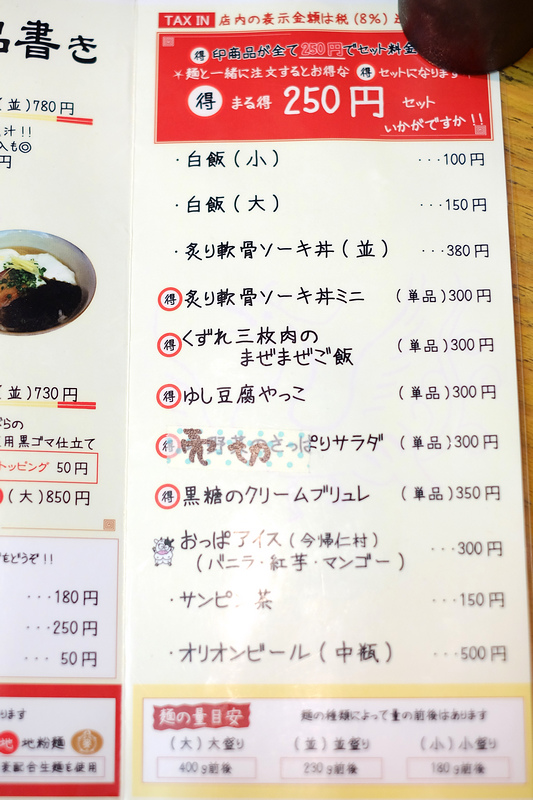 品書き
(並)780円
汁!!
入も◎
円
(並)730円
用黒ゴマ仕立て
トッピング 50円
(大)850円
をどうぞ!!
・・・180円
・・・250円
50円
ります
地 地粉麺
麦配合生麺を使用
TAX IN 店内の表示金額は税(8%)込
得 印商品が全て250円でセット料金
*麺と一緒に注文するとお得な 得 セットになります
得 まる得 250円 セット
いかがですか!!
・白飯(小) ・・・100円
・白飯(大) ・・・150円
・炙り軟骨ソーキ丼(並) ・・・380円
得 炙り軟骨ソーキ丼ミニ (単品)300円
得 くずれ三枚肉の
まぜまぜご飯 (単品)300円
得 ゆし豆腐やっこ (単品)300円
得 野菜のさっぱりサラダ (単品)300円
得 黒糖のクリームブリュレ (単品)350円
おっぱアイス(今帰仁村)
(バニラ・紅芋・マンゴー) ・・・300円
・サンピン茶 ・・・150円
・オリオンビール(中瓶) ・・・500円
麺の量目安 麺の種類によって量の前後はあります
(大)大盛り (並)並盛り (小)小盛り
400g前後 230g前後 180g前後